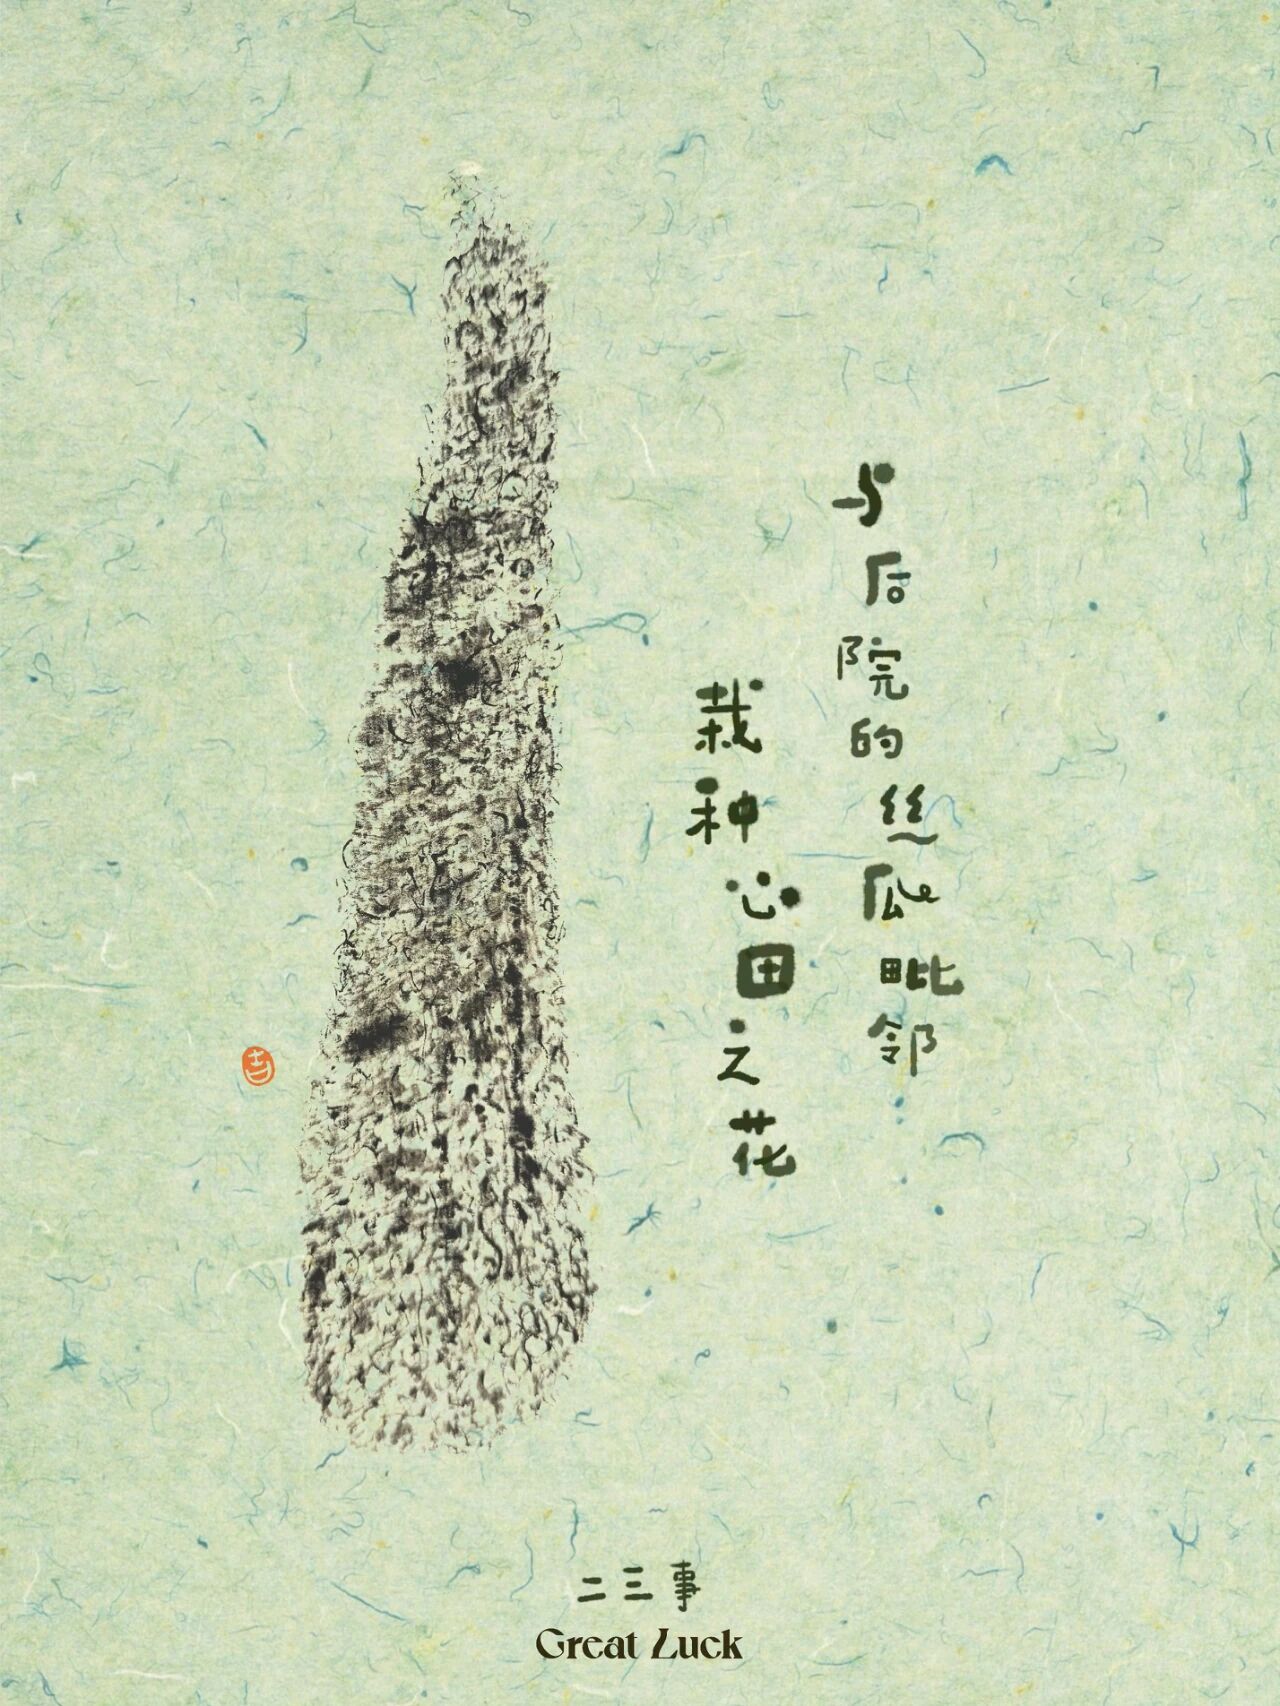 与后院的丝瓜毗邻
栽种心田之花
吉
二三事
Great Luck